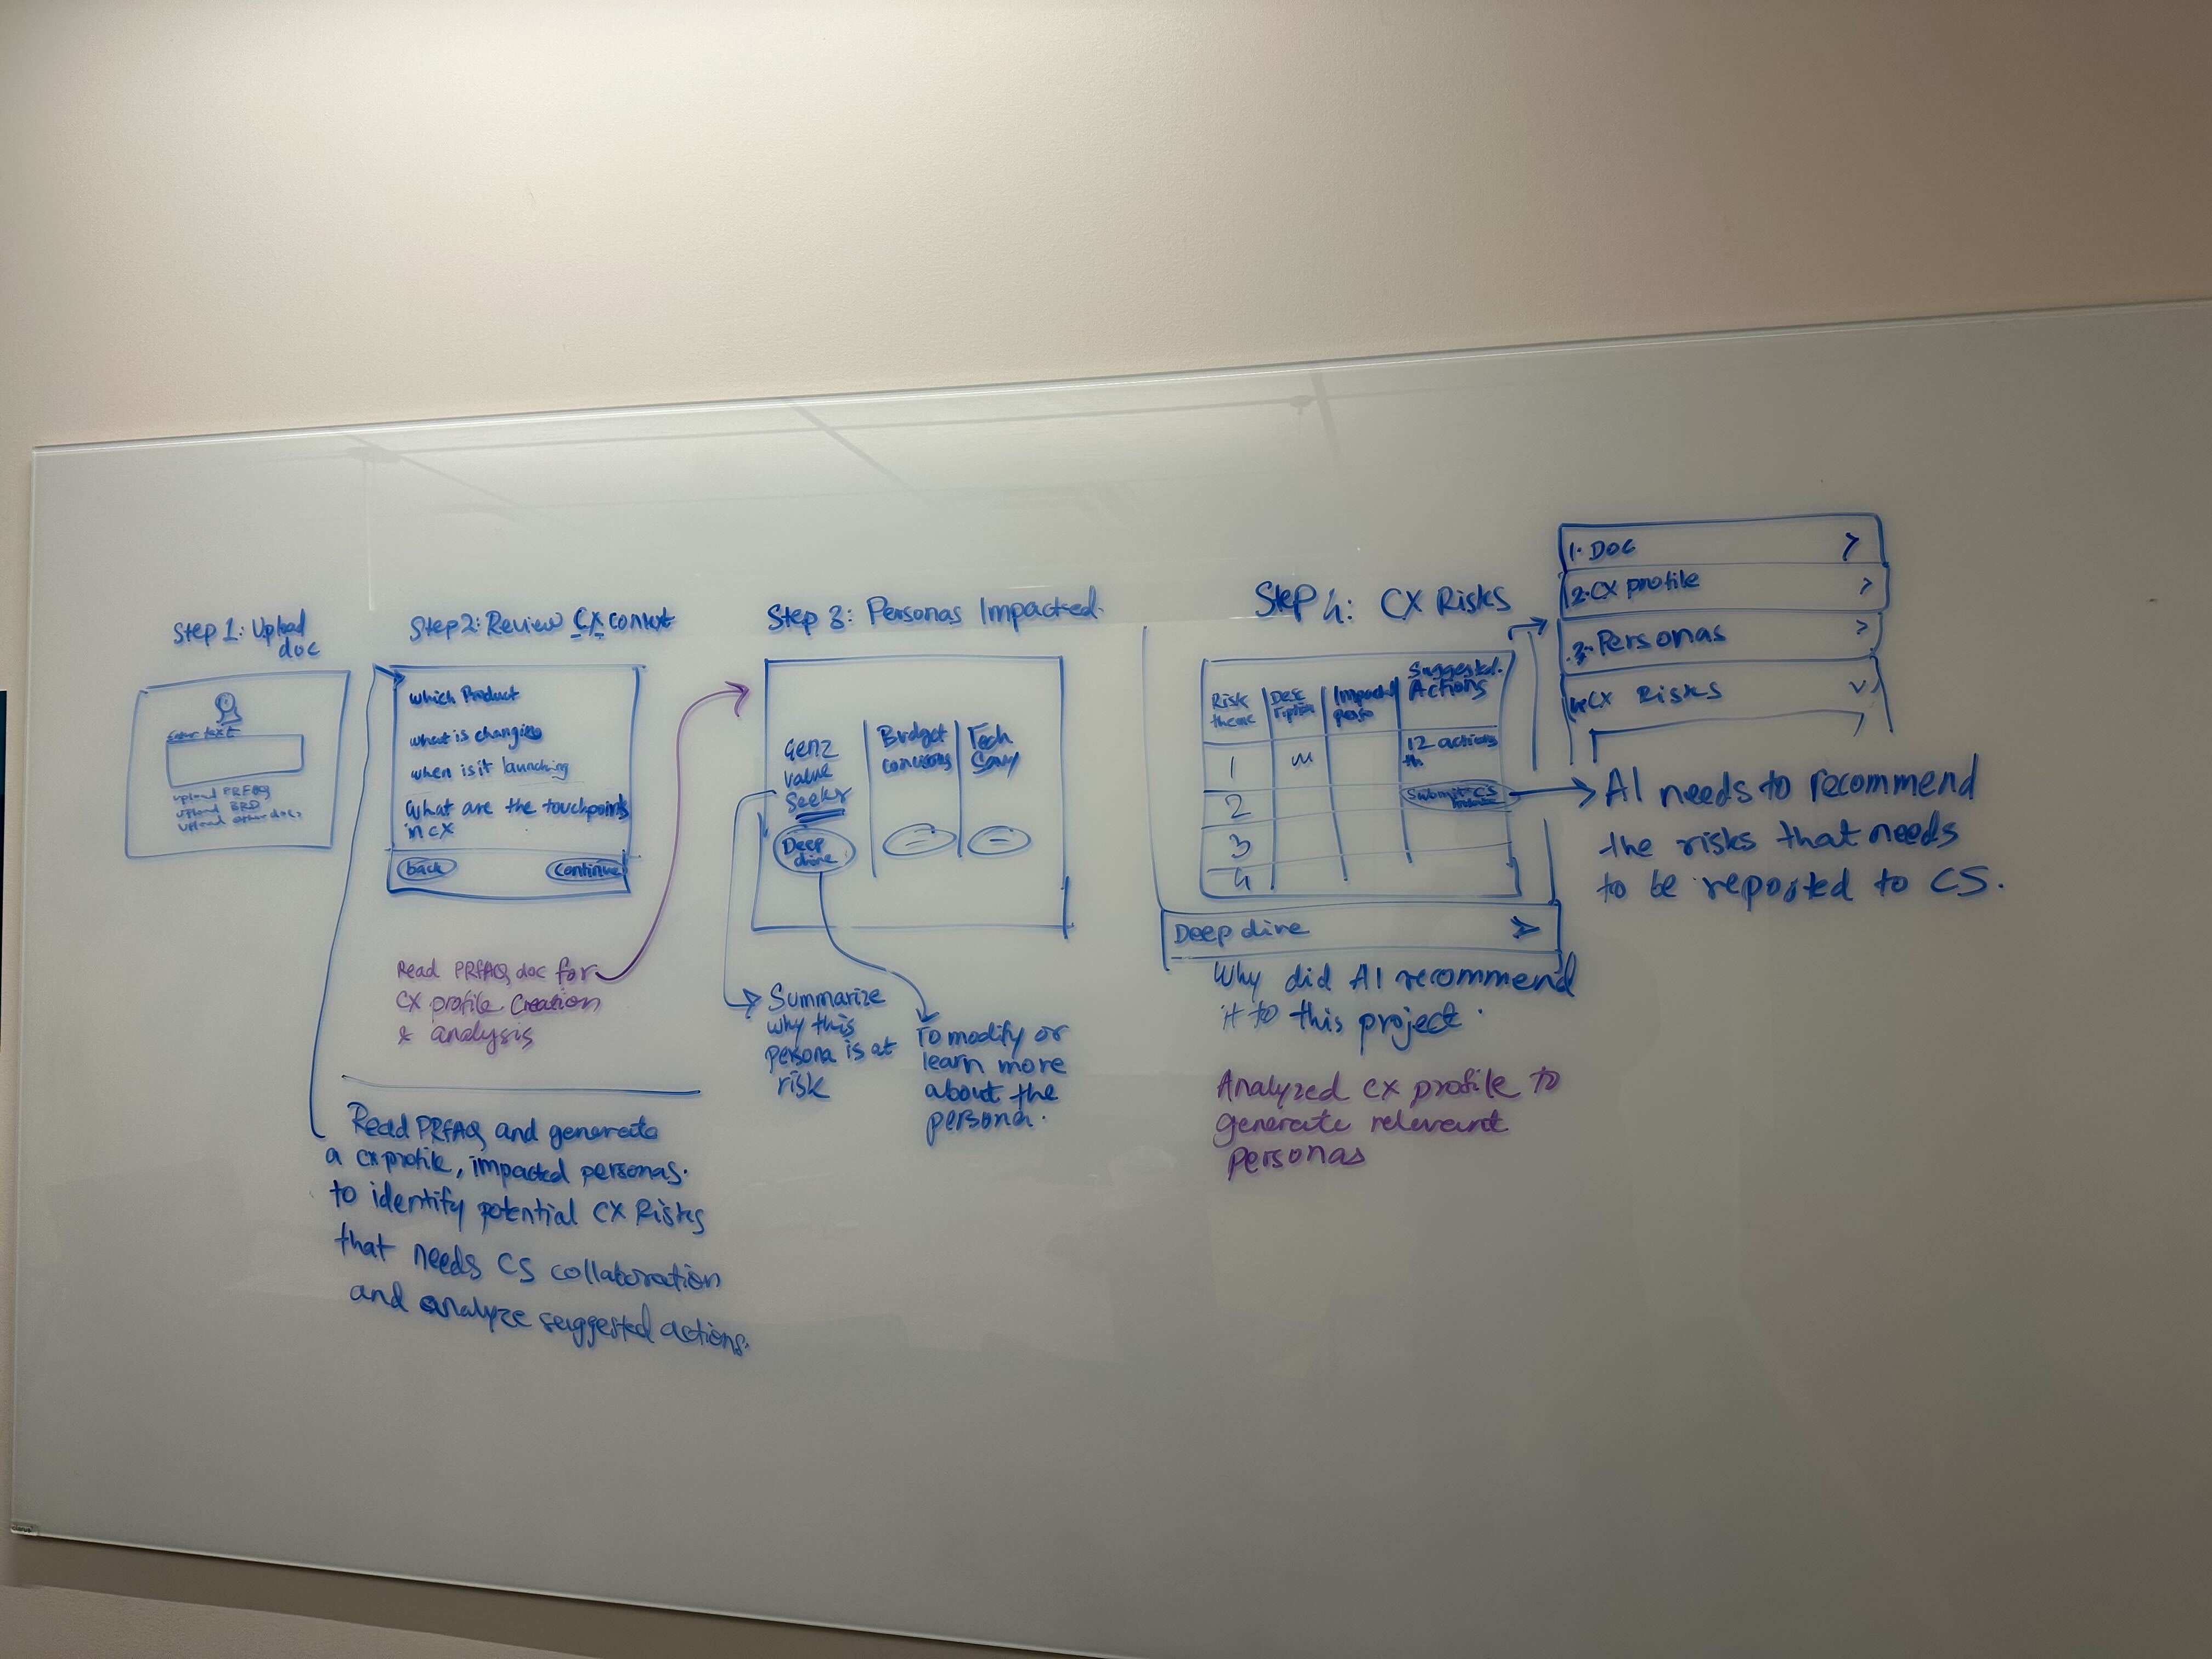 Step 1: Upload
doc
Enter text
upload PRFAQ
upload BRD
upload other docs
Step 2: Review CX context
which Product
what is changing
when is it launching
What are the touchpoints
in CX
back
Continue
Read PRFAQ doc for
CX profile Creation
& analysis
Read PRFAQ and generate
a cx profile, impacted personas.
to identify potential CX Risks
that needs CS collaboration
and analyze suggested actions.
Step 3: Personas Impacted.
Gen Z
value
Seeks
Deep
dive
Budget
conscious
Tech
Savy
Summarize
why this
persona is at
risk
To modify or
learn more
about the
persona.
Step 4: CX Risks
Risk
theme
Desc
ription
Impacted
perso
Suggested.
Actions
1
12 actions
2
Submit CS
3
4
Deep dive
Why did AI recommend
it to this project.
Analyzed cx profile to
generate relevant
personas
1. Doc
2. CX profile
3. Personas
4. CX Risks
AI needs to recommend
the risks that needs
to be reported to CS.